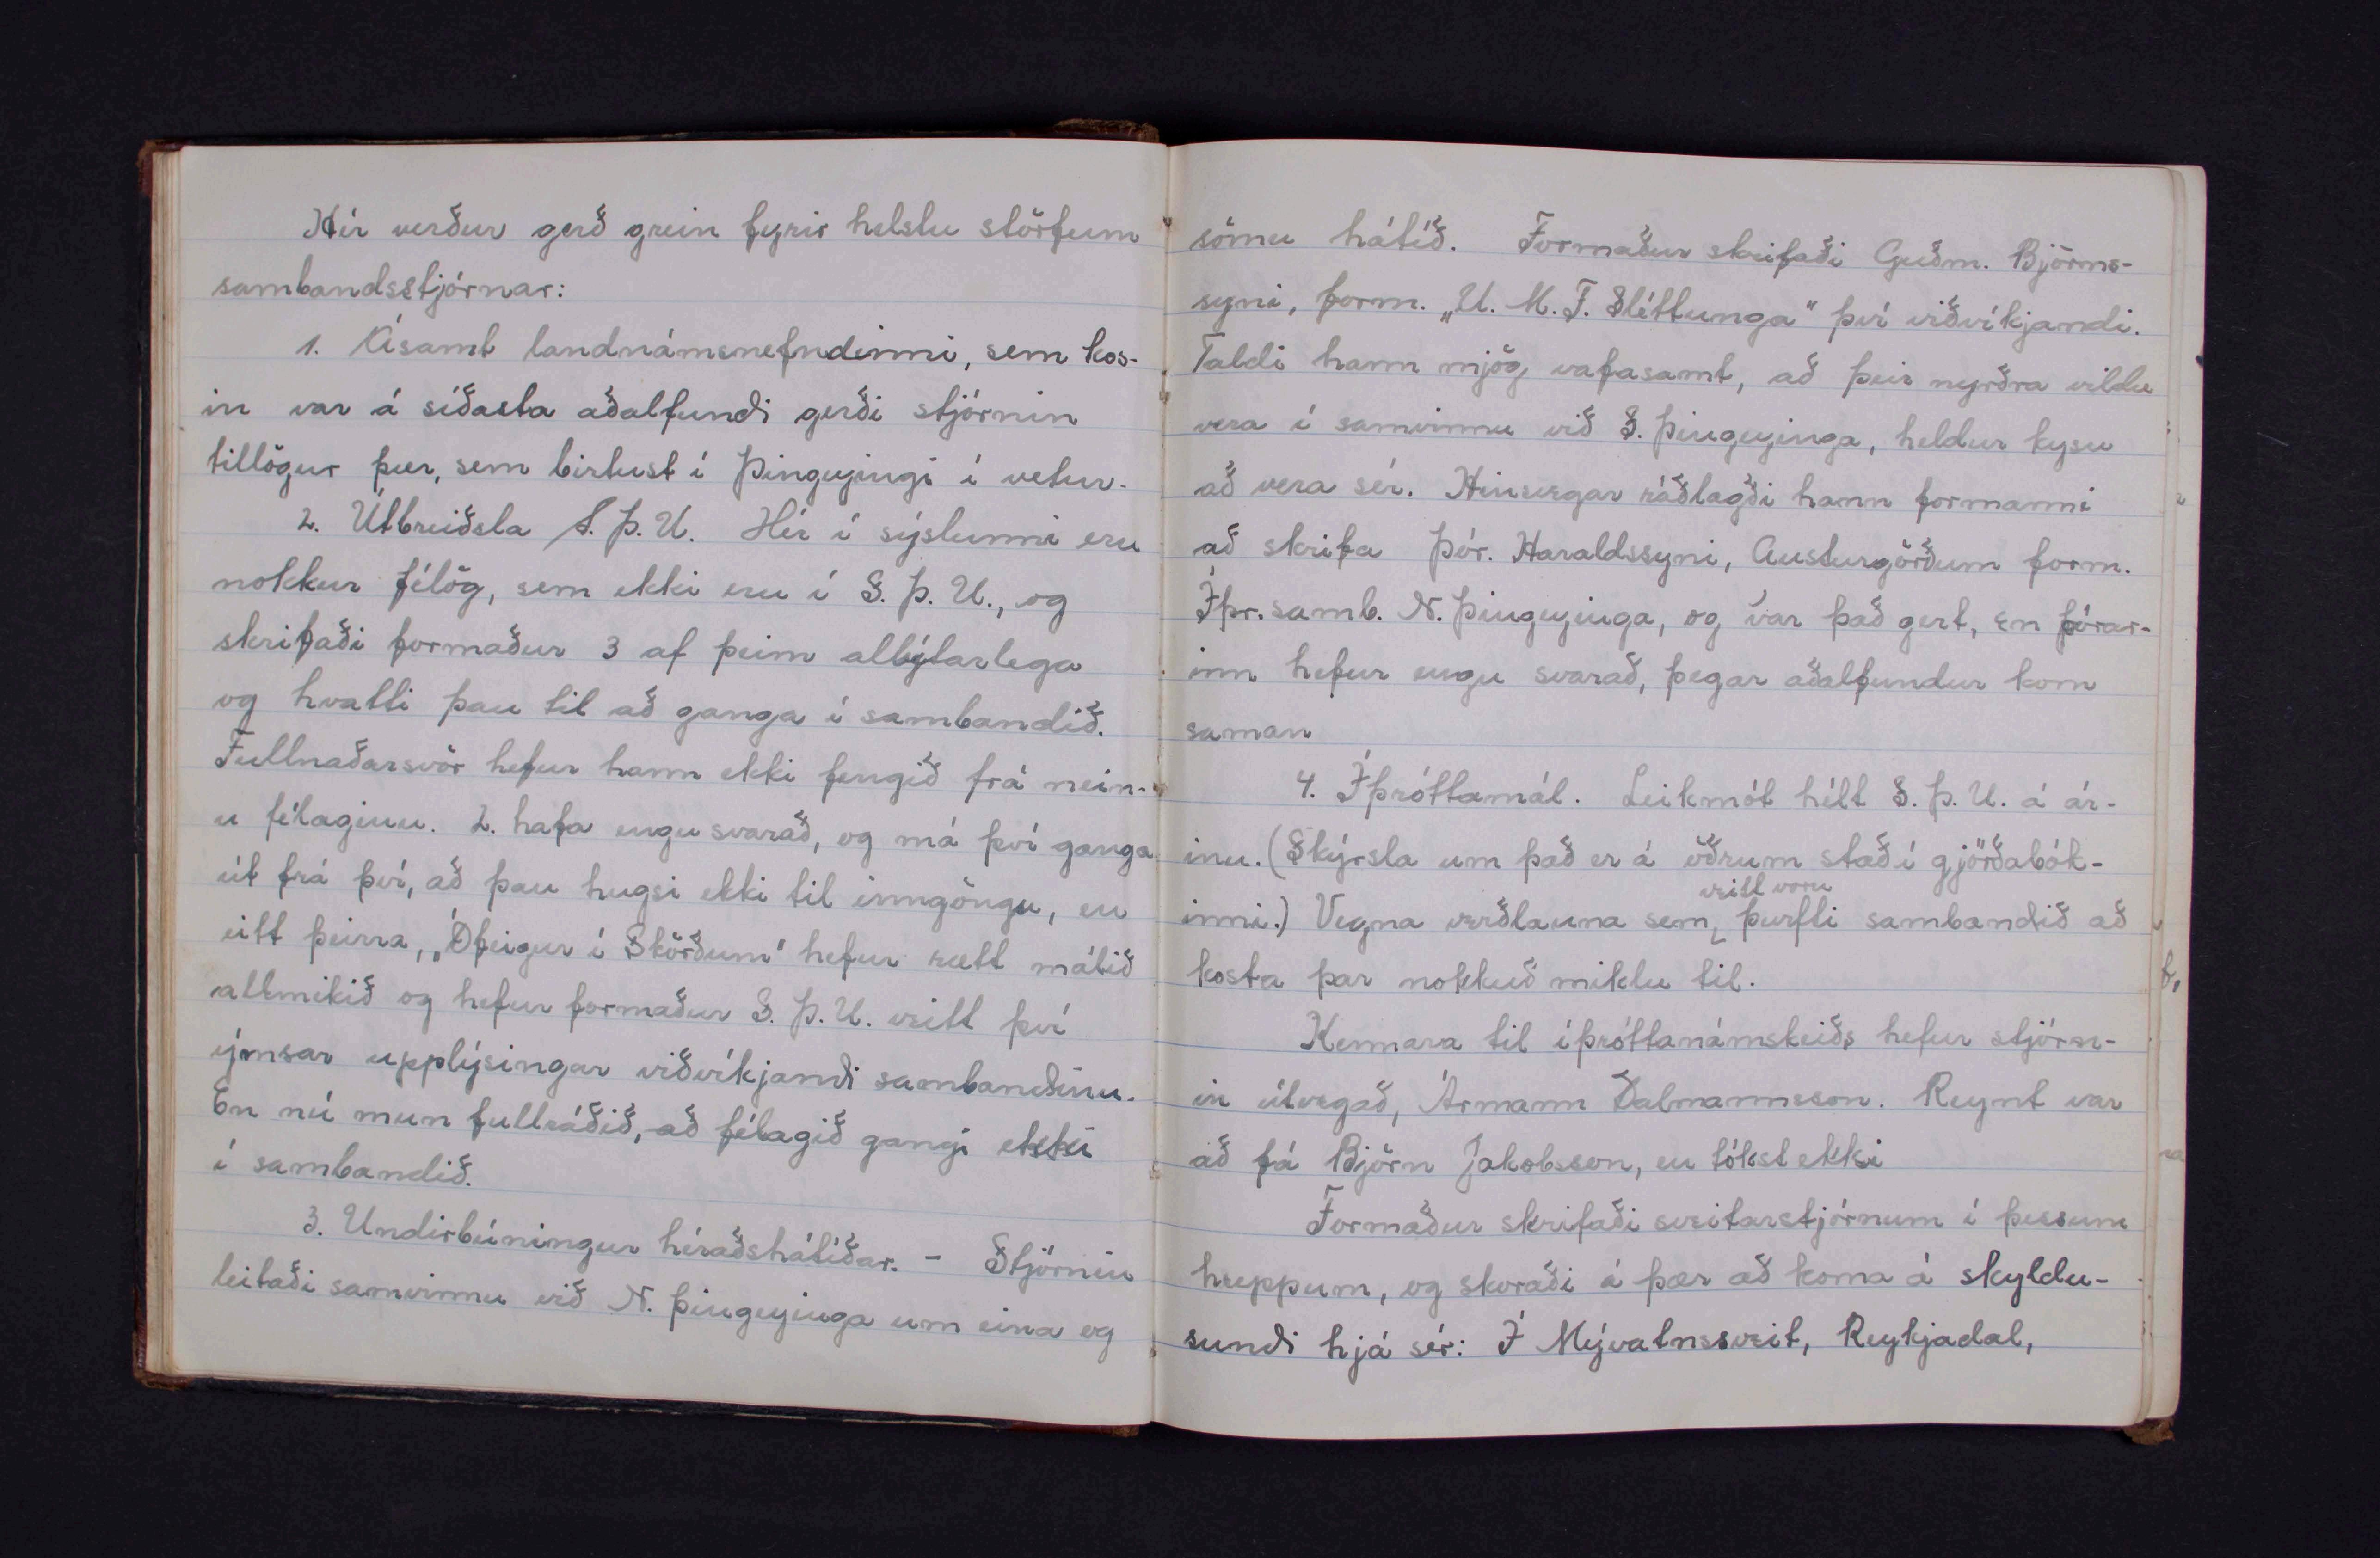 Hér verður gerð grein fyrir helstu störfum
sambandsstjórnar:
1. Ásamt landnámsnefndinni, sem kos-
in var á síðasta aðalfundi gerði stjórnin
tillögur þær, sem birtust í Þingeyingi í vetur.
2. Útbreiðsla S.Þ.U. Hér í sýslunni eru
nokkur félög, sem ekki eru í S.Þ.U., og
skrifaði formaður 3 af þeim allýtarlega
og hvatti þau til að ganga í sambandið.
Fullnaðarsvör hefur hann ekki fengið frá nein-
u félaginu. 2. hafa engu svarað, og má því ganga
út frá því, að þau hugsi ekki til inngöngu, en
eitt þeirra, „Ófeigur í Skörðum" hefur rætt málið
allmikið og hefur formaður S.Þ.U. veitt því
ýmsar upplýsingar viðvíkjandi sambandinu.
En nú mun fullráðið, að félagið gangi ekki
í sambandið.
3. Undirbúningur héraðshátíðar. - Stjórnin
leitaði samvinnu við N. Þingeyinga um eina og
sömu hátíð. Formaður skrifaði Guðm. Björns-
syni, form. „U.M.F. Sléttunga" því viðvíkjandi.
Taldi hann mjög vafasamt, að þeir nyrðra vildu
vera í samvinnu við S. Þingeyinga, heldur kysu
að vera sér. Hinsvegar ráðlagði hann formanni
að skrifa Þór. Haraldssyni, Austurgörðum form.
Íþr.samb. N. Þingeyinga, og var það gert, en Þórar-
inn hefur engu svarað, þegar aðalfundur kom
saman
4. Íþróttamál. Leikmót hélt S.Þ.U. á ár-
inu. (Skýrsla um það er á öðrum stað í gjörðabók-
inni.) Vegna verðlauna sem veitt voru þurfti sambandið að
kosta þar nokkuð miklu til.
Kennara til íþróttanámskeiðs hefur stjórn-
in útvegað, Ármann Dalmannsson. Reynt var
að fá Björn Jakobsson, en tókst ekki
Formaður skrifaði sveitarstjórnum í þessum
hreppum, og skoraði á þær að koma á skyldu-
sundi hjá sér: Í Mývatnssveit, Reykjadal,